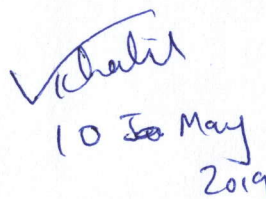 Khalil
10 May
2019